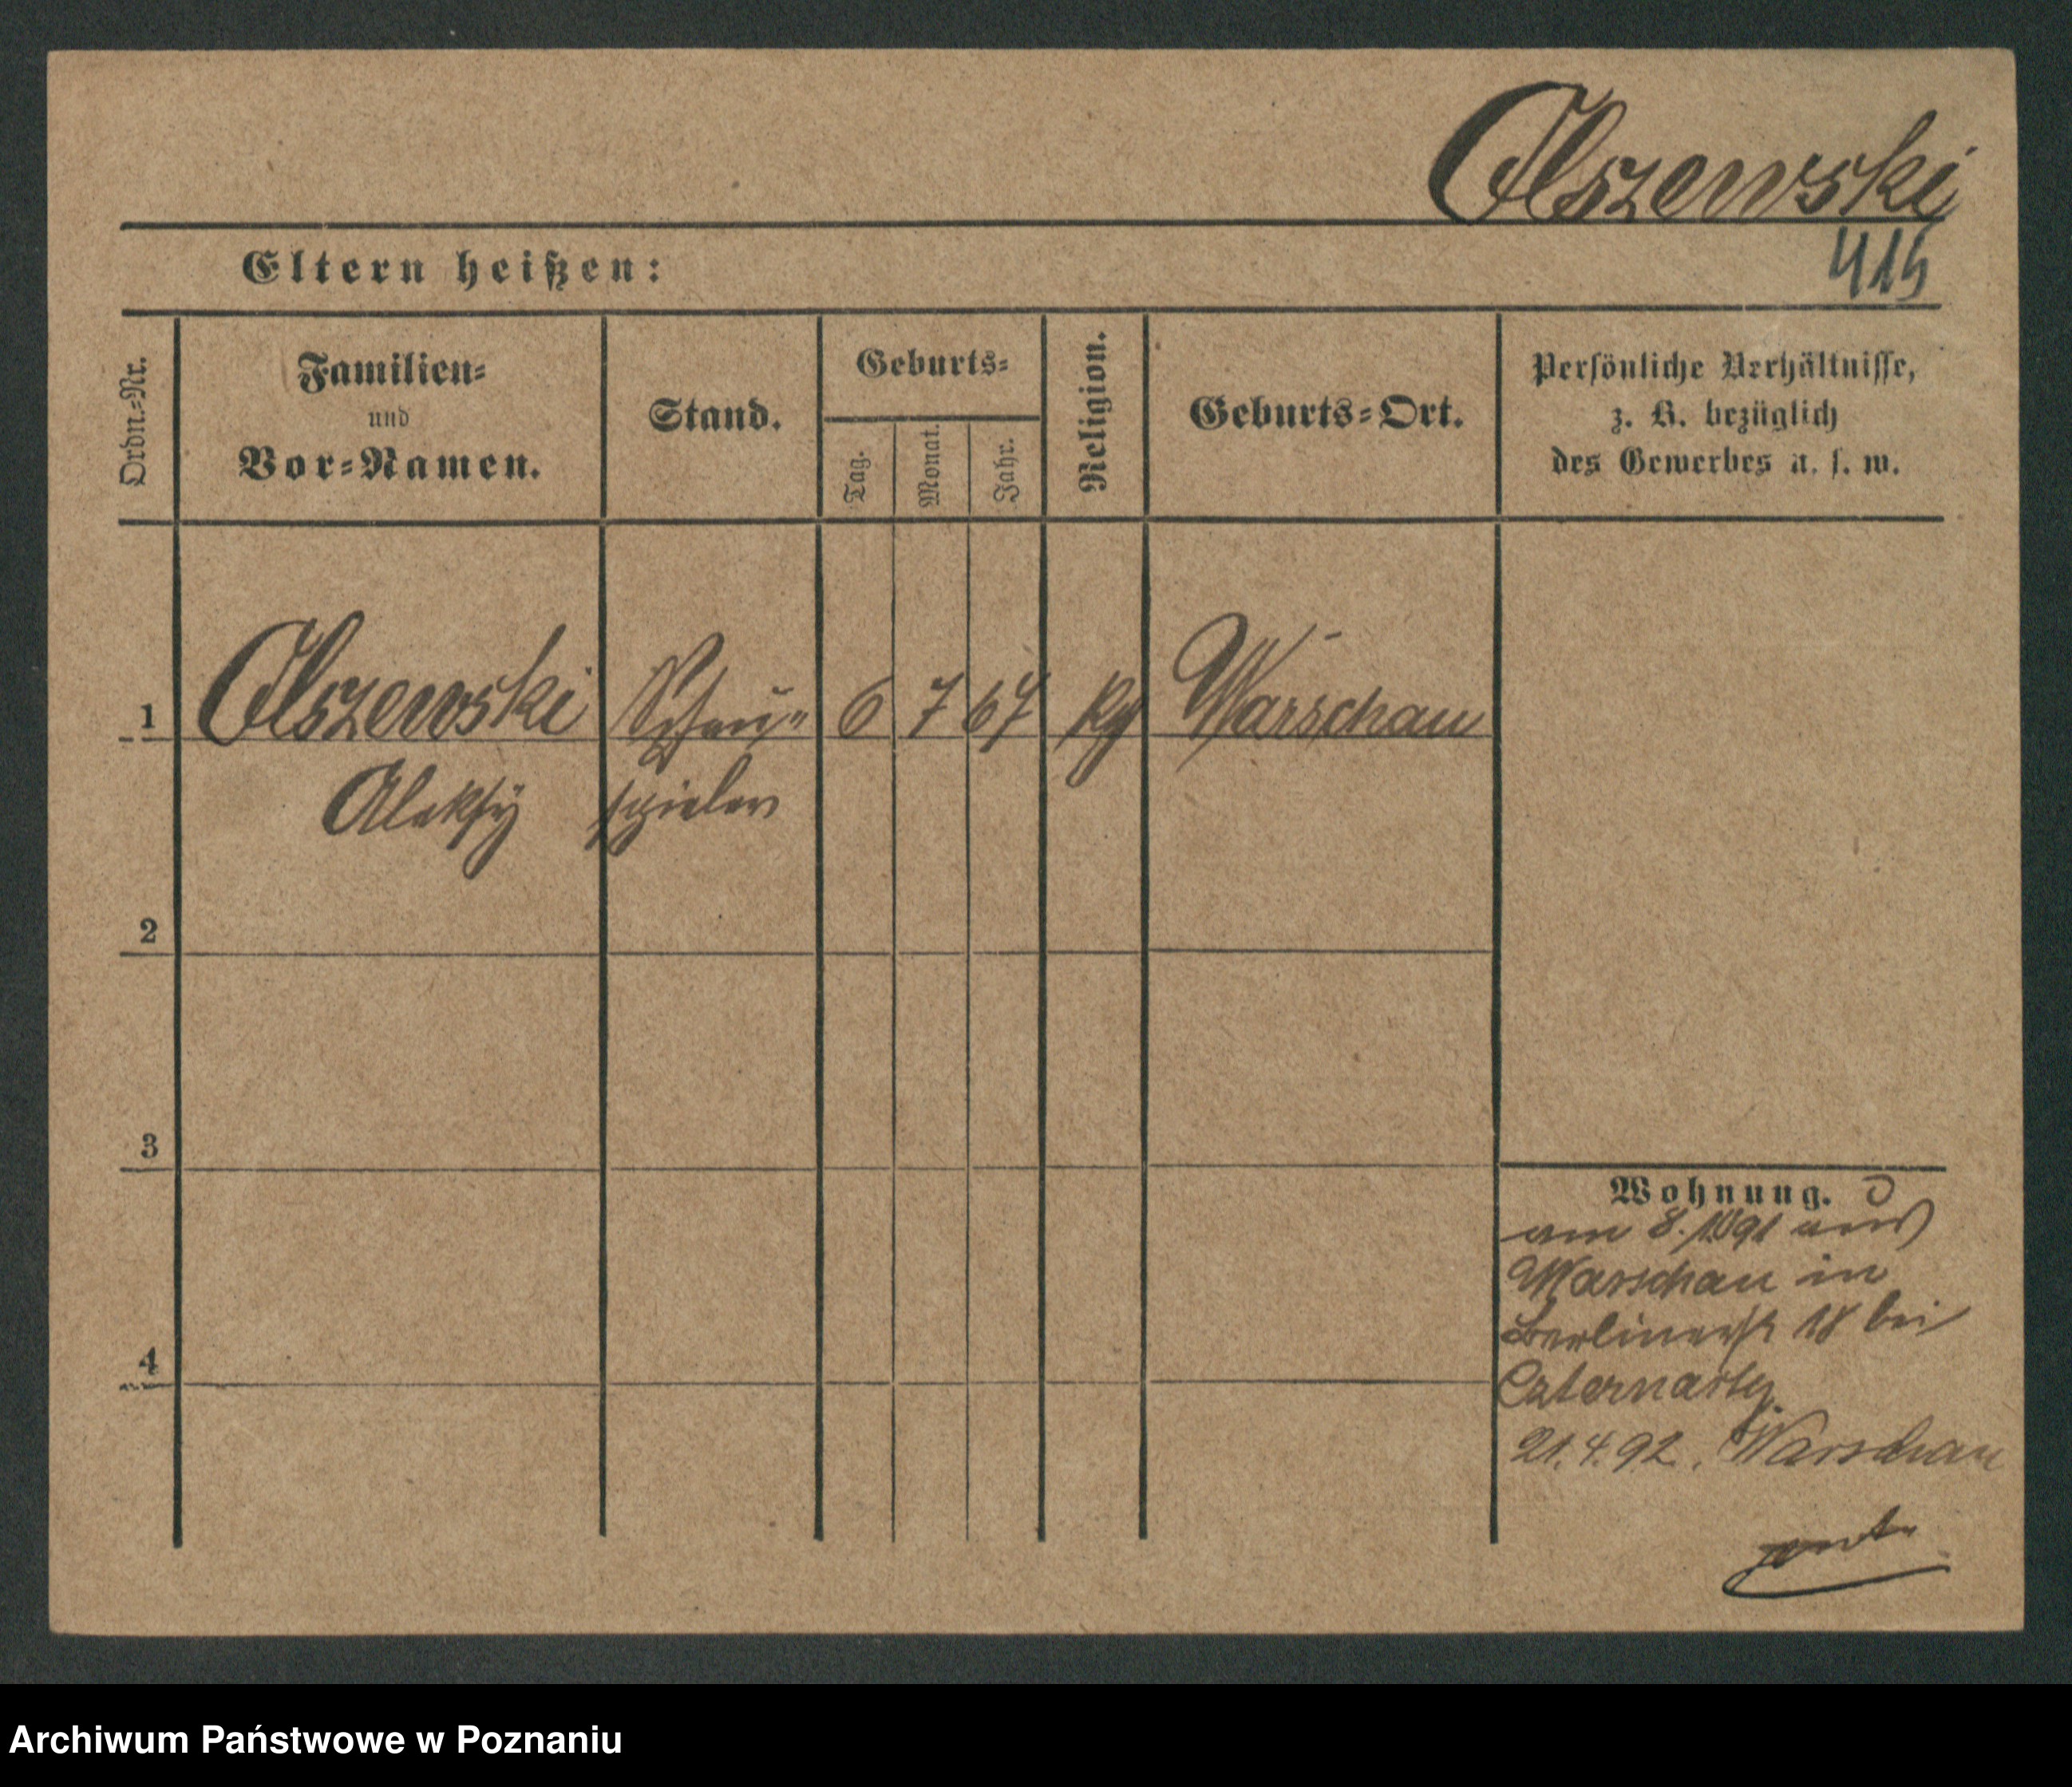 Olszewski
415
Eltern heißen:
Ordn.=Nr.
Familien=
und
Vor=Namen.
Stand.
Geburts=
Tag.
Monat.
Jahr.
Religion.
Geburts=Ort.
Persönliche Verhältnisse,
z. B. bezüglich
des Gewerbes u. s. w.
1 Olszewski Schau= 6 7 67 Warschau
Aleksy spieler
2
3
Wohnung.
am 8. 91 aus
Warschau in
Berlinerstr 18 bei
4
21.4.92. Warschau
Archiwum Państwowe w Poznaniu